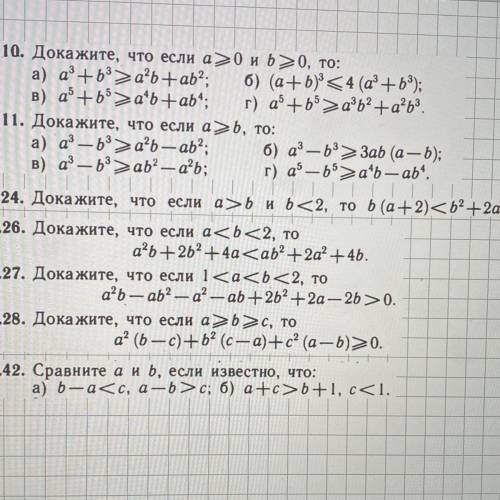 10. Докажите, что если a⩾0 и b⩾0, то:
а) a³+b³⩾a²b+ab²; б) (a+b)³⩽4 (a³+b³);
в) a⁵+b⁵⩾a⁴b+ab⁴; г) a⁵+b⁵⩾a³b²+a²b³.
11. Докажите, что если a⩾b, то:
а) a³—b³⩾a²b—ab²; б) a³—b³⩾3ab (a—b);
в) a³—b³⩾ab²—a²b; г) a⁵—b⁵⩾a⁴b—ab⁴.
24. Докажите, что если a>b и b<2, то b (a+2)<b²+2a
.26. Докажите, что если a<b<2, то
a²b+2b²+4a<ab²+2a²+4b.
.27. Докажите, что если 1<a<b<2, то
a²b—ab²—a²—ab+2b²+2a—2b>0.
.28. Докажите, что если a⩾b⩾c, то
a² (b—c)+b² (c—a)+c² (a—b)⩾0.
.42. Сравните a и b, если известно, что:
а) b—a<c, a—b>c; б) a+c>b+1, c<1.